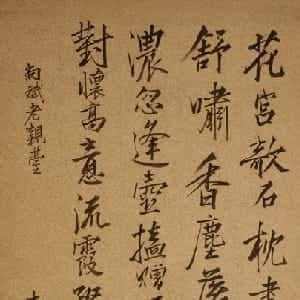 花宮欹石枕
舒嘯香塵落
濃忽逢壺榼贈
對懷高意流霞
斌老親臺